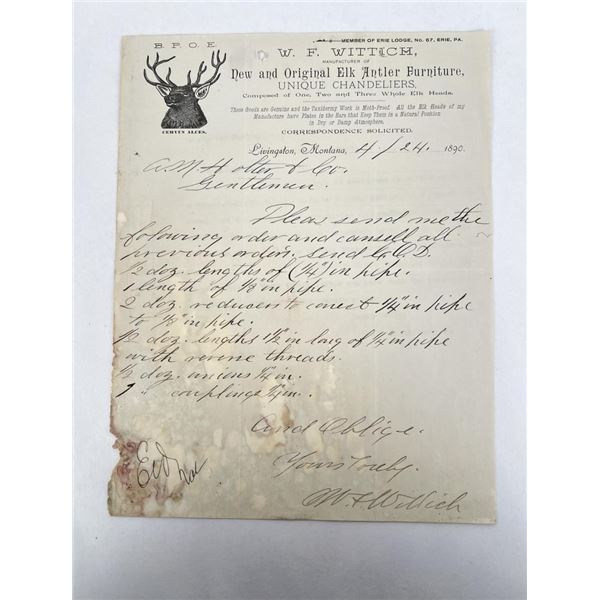 MEMBER OF ERIE LODGE, No. 67, ERIE, PA.
B. P. O. E.
W. F. WITTICH,
MANUFACTURER OF
New and Original Elk Antler Furniture,
UNIQUE CHANDELIERS,
Composed of One, Two and Three Whole Elk Heads.
These Goods are Genuine and the Taxidermy Work is Moth-Proof. All the Elk Heads of my
Manufacture have Plates in the Ears that Keep Them in a Natural Position
in Dry or Damp Atmosphere.
CERVUS ALCES.
CORRESPONDENCE SOLICITED.
Livingston, Montana, 4/24. 1890.
A. M. Holter & Co.
Gentlemen.
Please send me the
following order and cansell all
previous orders. send C.O.D.
1/2 doz. lengths of (1/4") in pipe.
1 length of 1/8" in pipe.
2 doz. reducers to conect 1/4" in pipe
to 1/8" in pipe.
1/2 doz. lengths 1 1/2 in long of 1/4" in pipe
with reverse threads.
1/2 doz. unions 1/4 in.
1 " couplings 1/4 in.
And Oblige.
Yours Truly.
W. F. Wittich